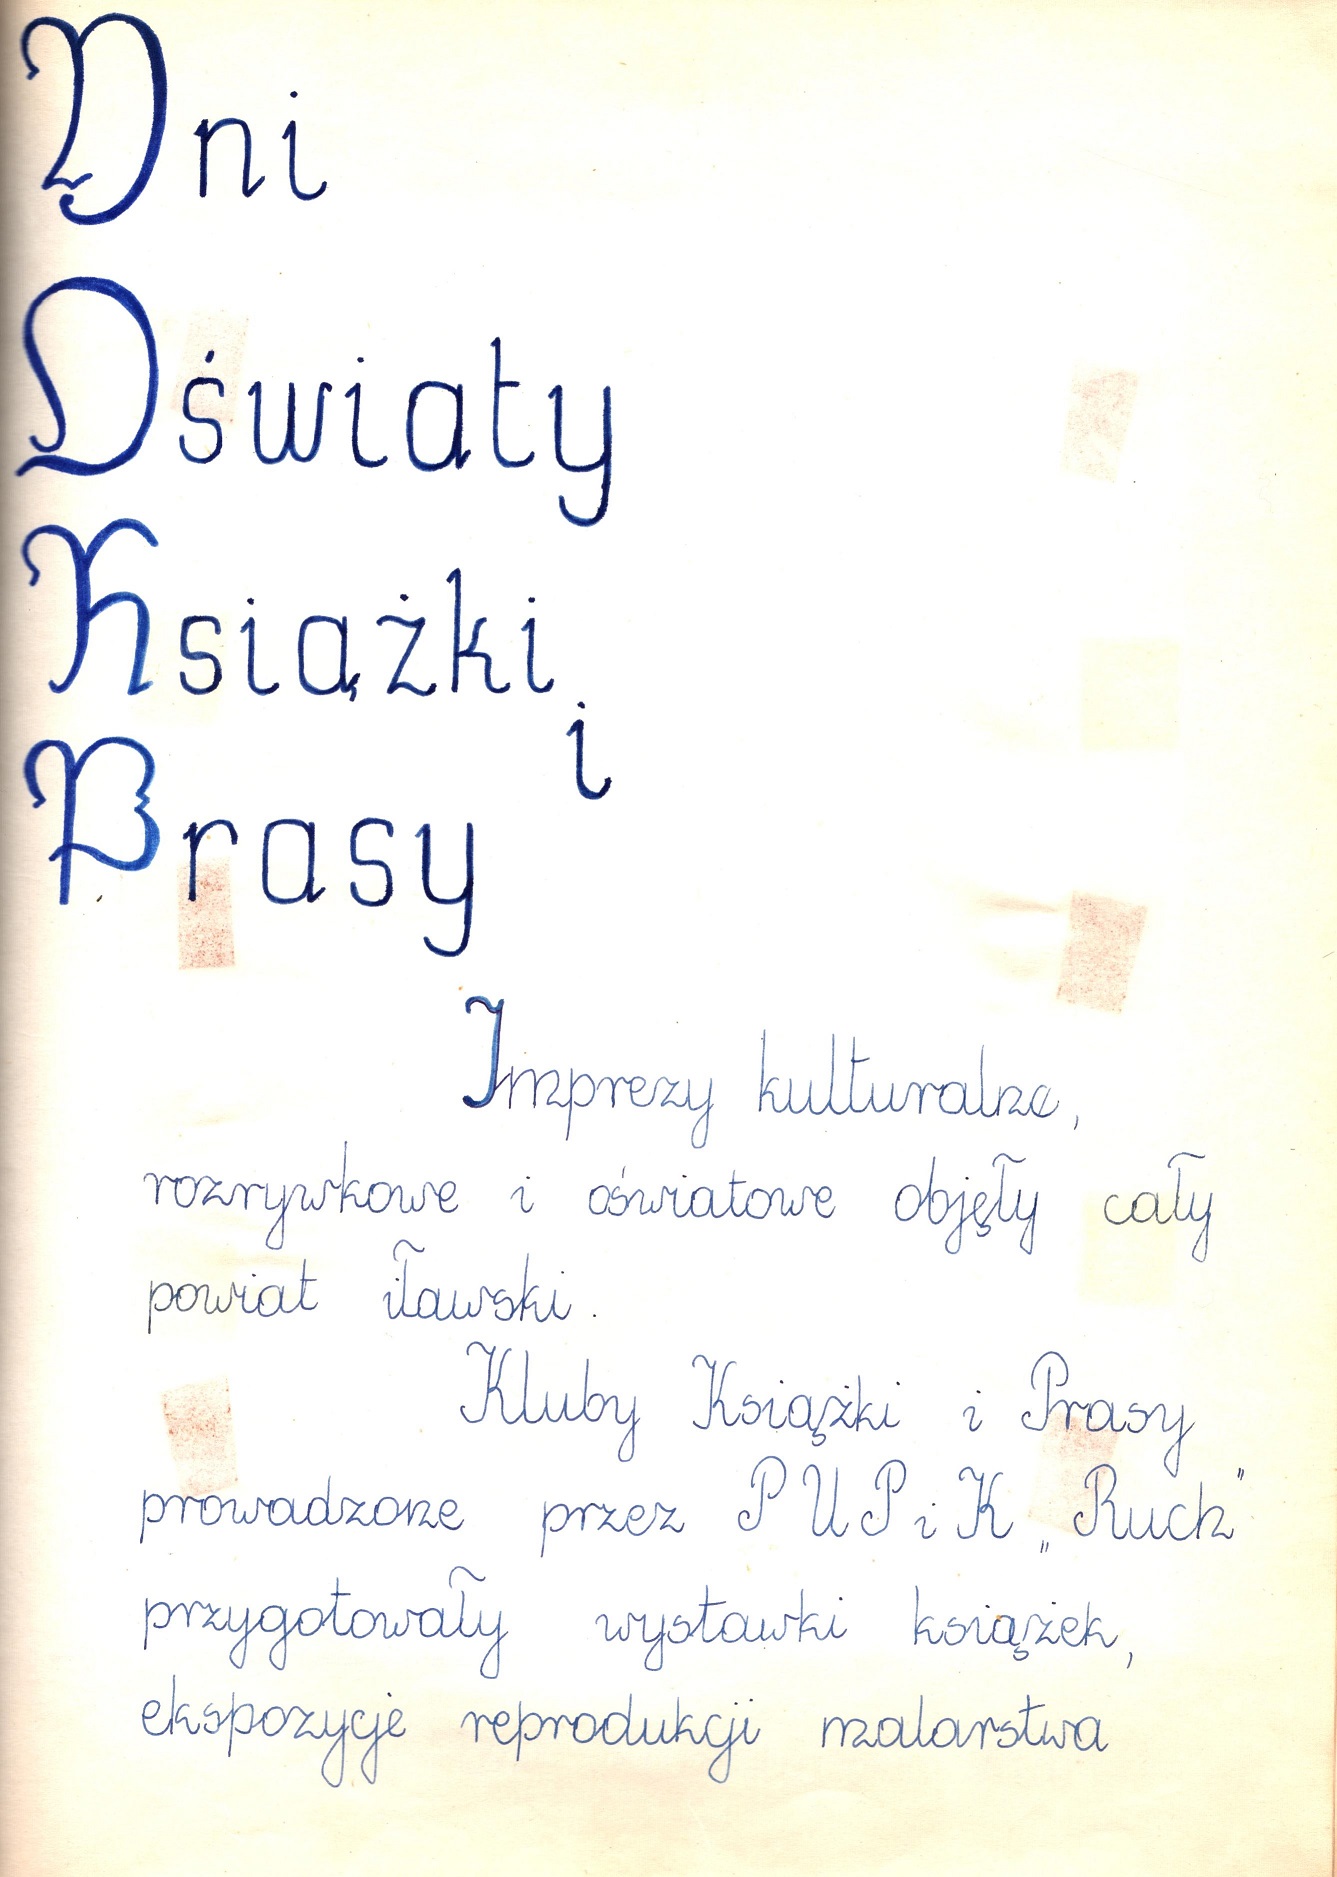 Dni
Oświaty
Książki
i
Prasy
Imprezy kulturalne,
rozrywkowe i oświatowe objęły cały
powiat iławski.
Kluby Książki i Prasy
prowadzone przez PUPiK „Ruch”
przygotowały wystawki książek,
ekspozycje reprodukcji malarstwa